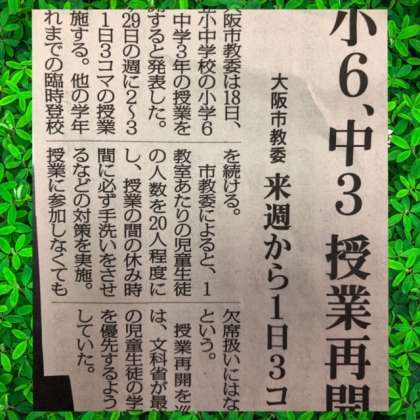 小6、中3 授業再開
大阪市教委 来週から1日3コ
大阪市教委は18日、
立小中学校の小学6
中学3年の授業を
開すると発表した。
29日の週に2～3
1日3コマの授業
施する。他の学年
れまでの臨時登校
を続ける。
市教委によると、1
教室あたりの児童生徒
の人数を20人程度に
し、授業の間の休み時
間に必ず手洗いをさせ
るなどの対策を実施。
授業に参加しなくても
欠席扱いにはな
という。
授業再開を巡
は、文科省が最
の児童生徒の学
を優先するよう
していた。